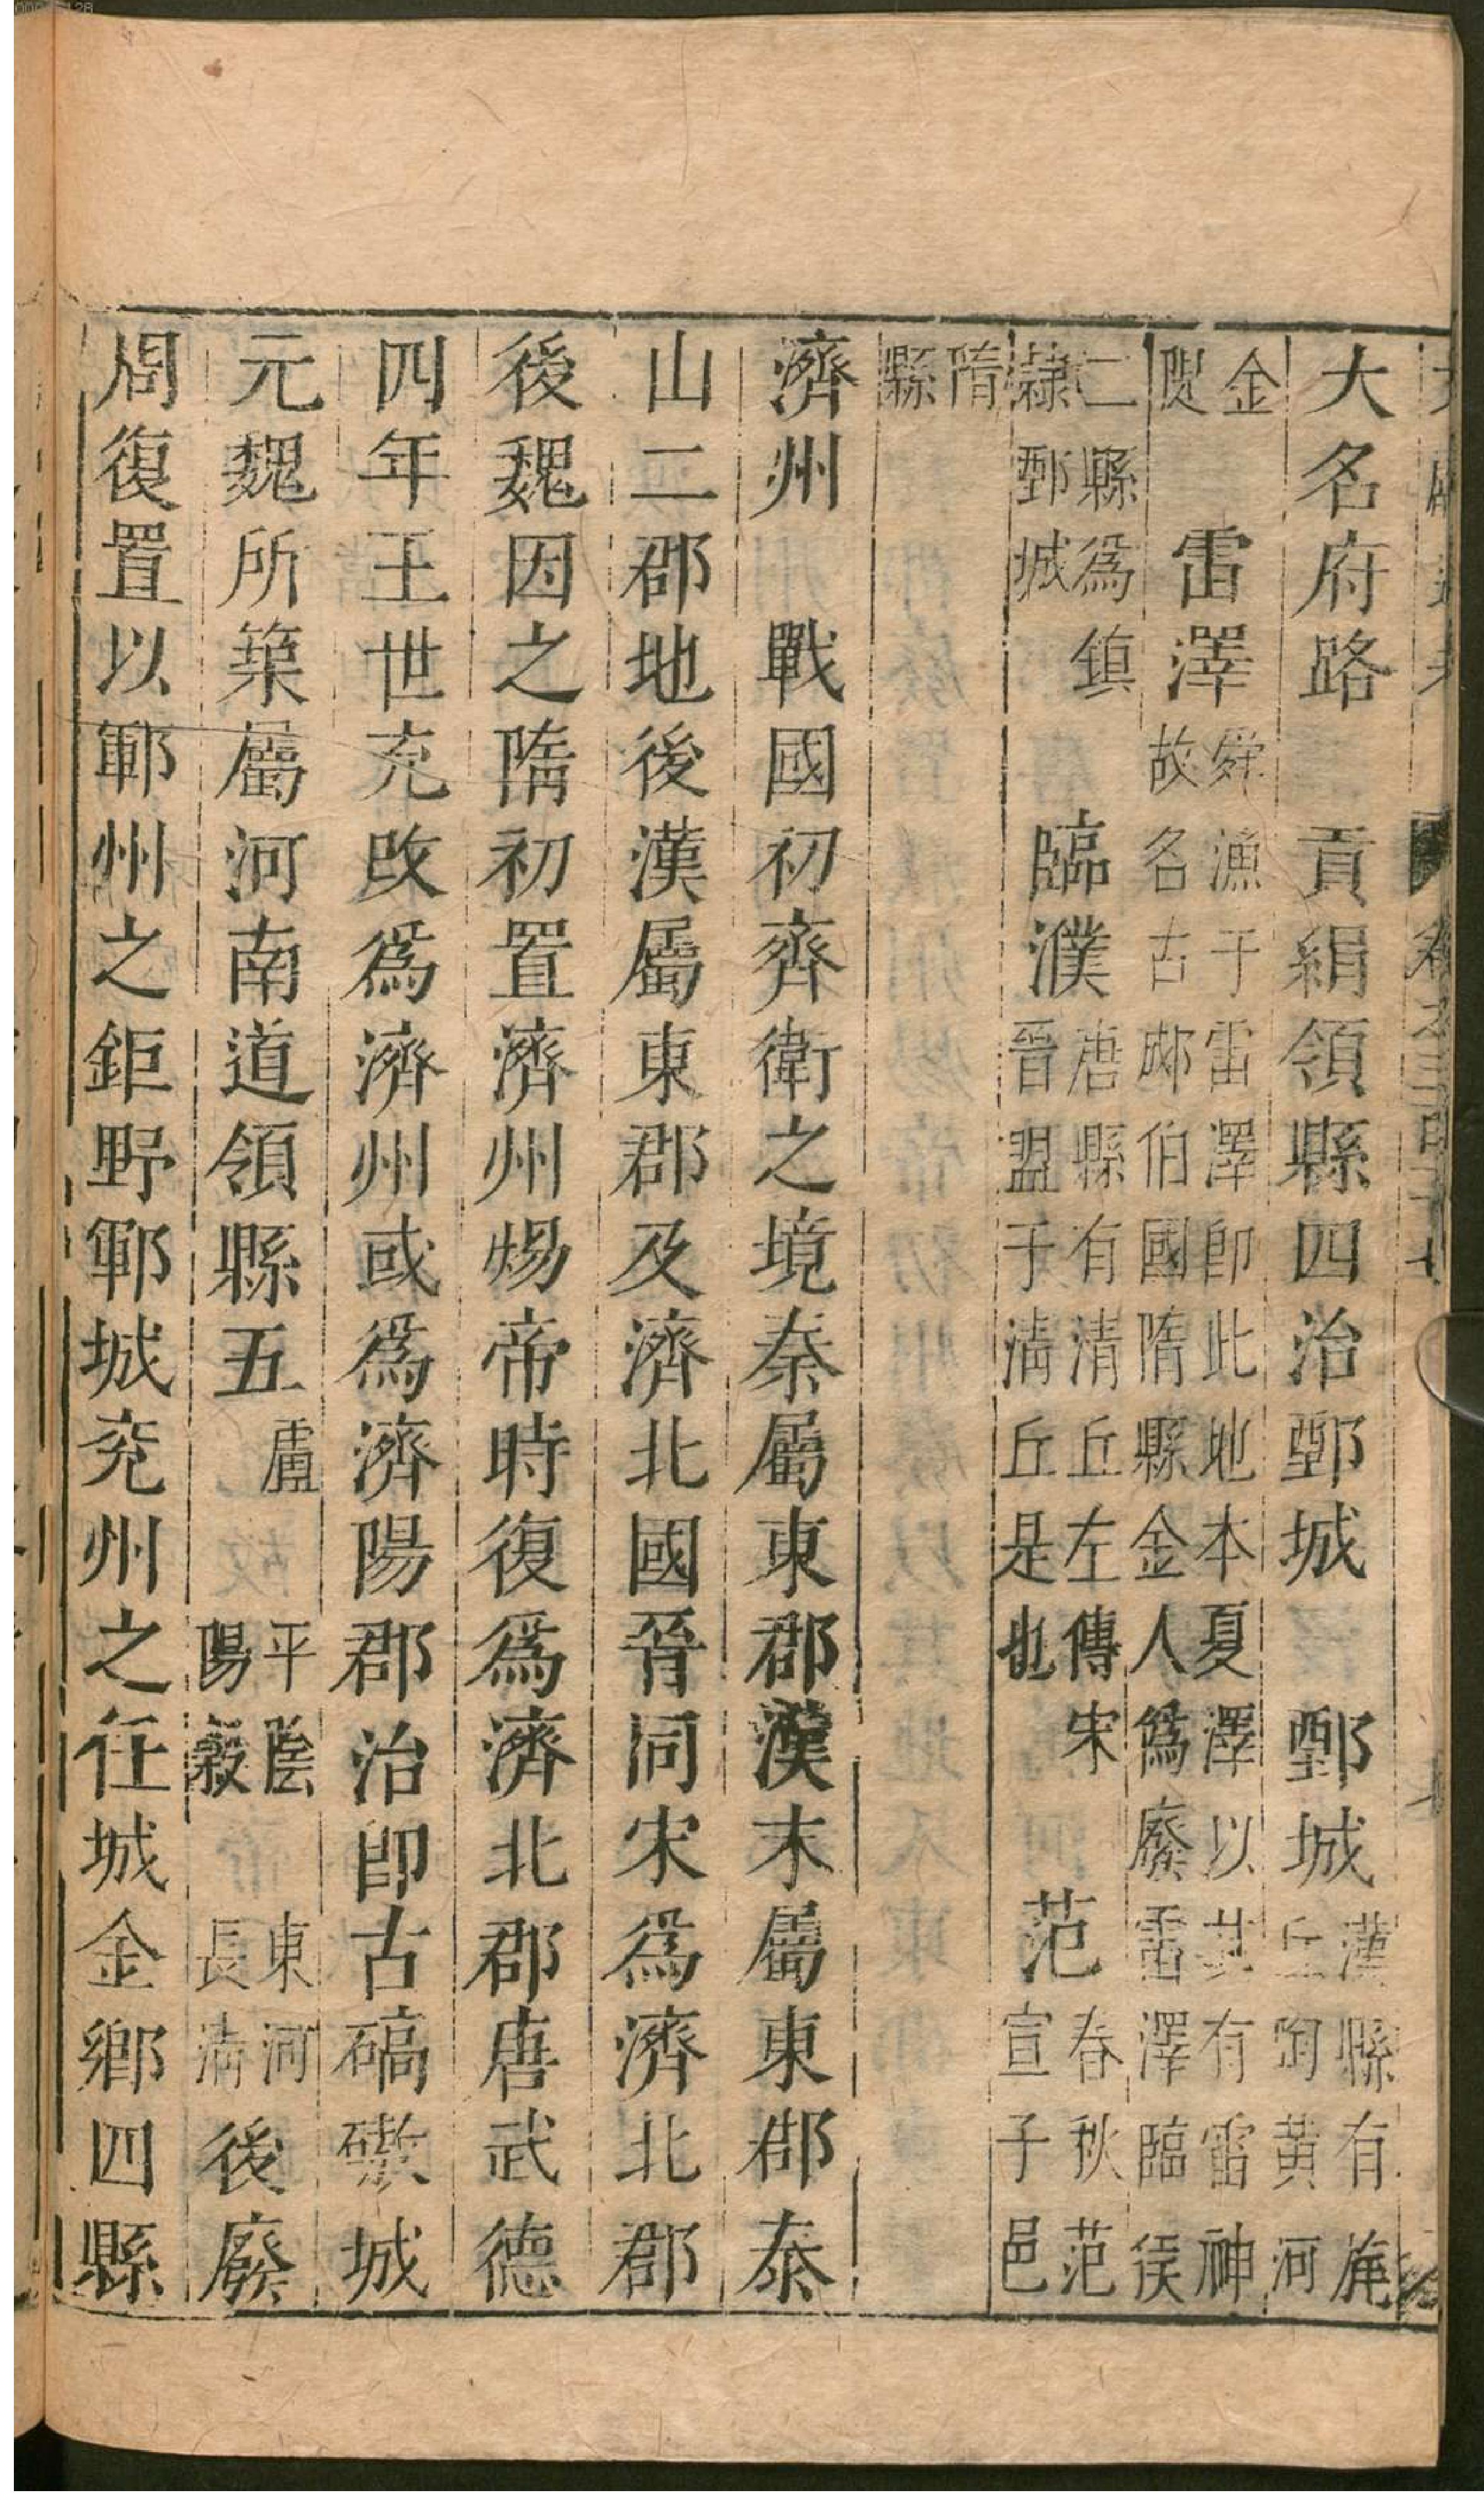 大名府路　貢絹領縣四治鄄城　鄄城漢縣有旄丘陶黃河
金隄　雷澤舜漁于雷澤卽此地本夏澤以其有雷神故名古郕伯國隋縣金人僞廢雷澤臨僕
二縣爲鎮隸鄄城　臨濮唐縣有清丘左傳宋晉盟于清丘是也　范春秋范宣子邑
隋縣
濟州　戰國初齊衛之境秦屬東郡漢末屬東郡泰
山二郡地後漢屬東郡及濟北國晉同宋爲濟北郡
後魏因之隋初置濟州煬帝時復爲濟北郡唐武德
四年王世充改爲濟州或爲濟陽郡治卽古碻磝城
元魏所築屬河南道領縣五盧　平陰陽穀　東河長淸後廢
周復置以鄆州之鉅野鄆城兖州之任城金鄉四縣